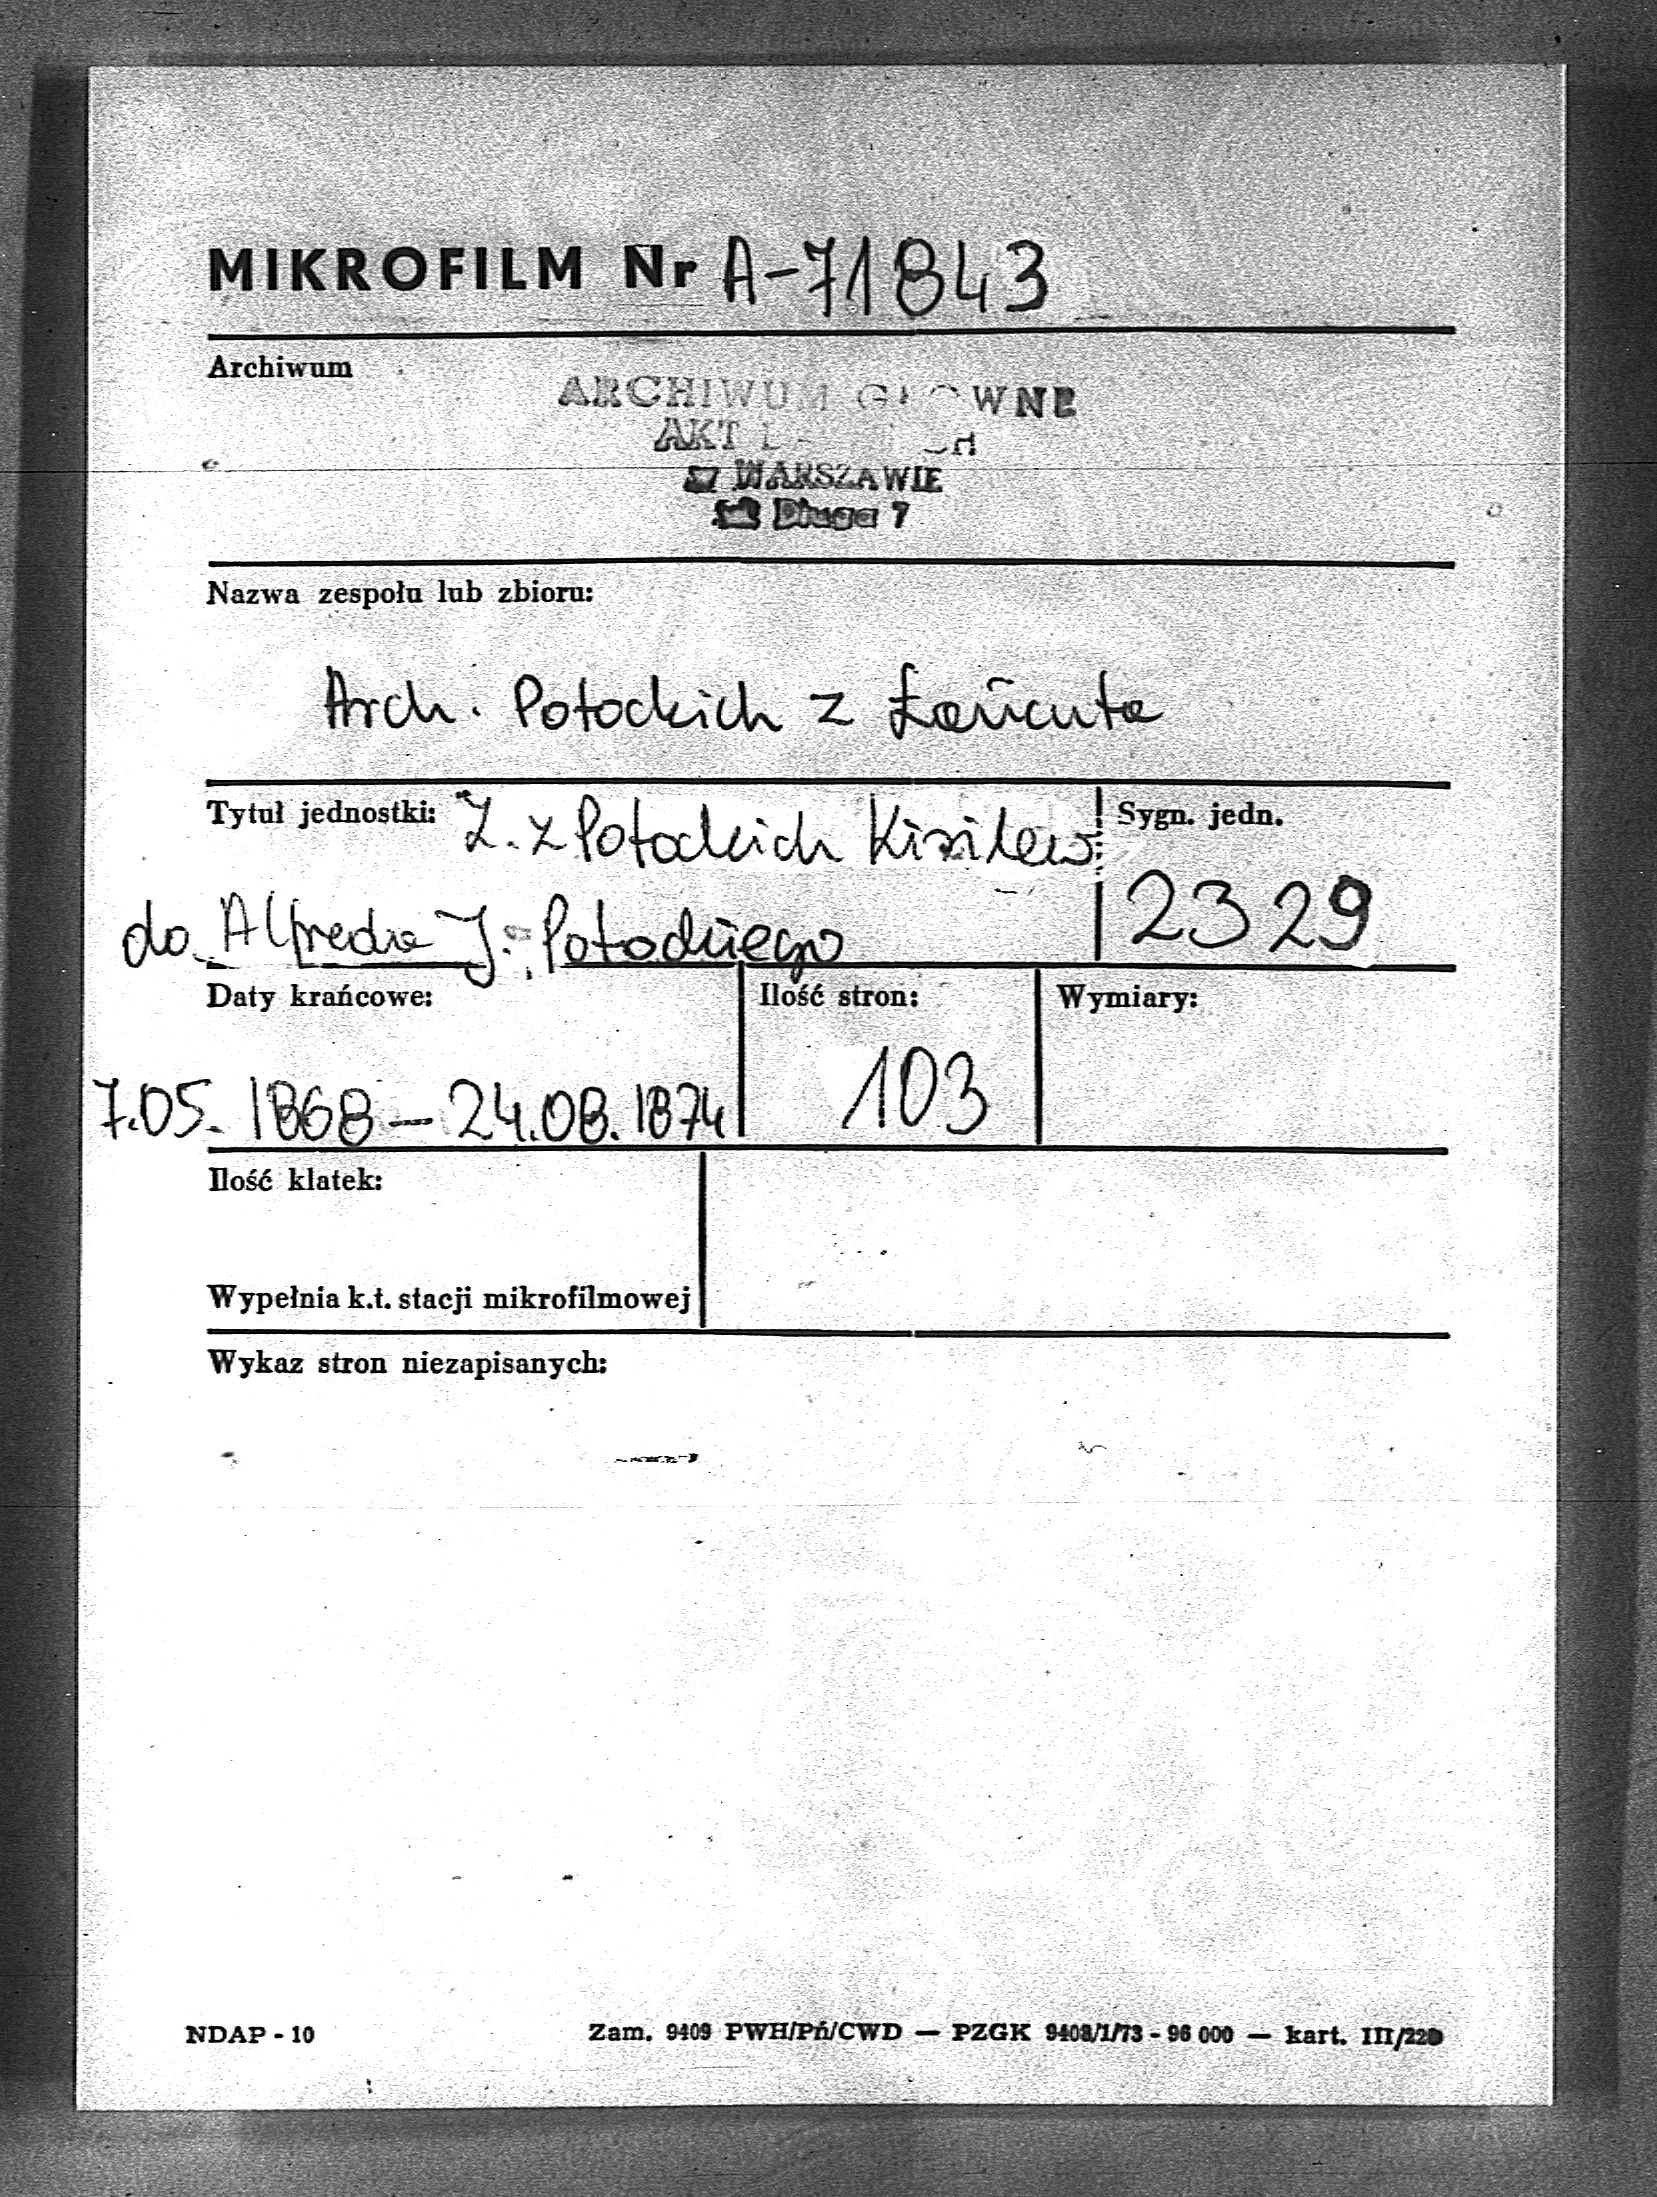 MIKROFILM Nr A-71843
Archiwum
ARCHIWUM GŁÓWNE
AKT
W WARSZAWIE
ul. Długa 7
Nazwa zespołu lub zbioru:
Arch. Potockich z Łańcuta
Tytuł jednostki: Z. z Potockich Kisilew. Sygn. jedn.
do Alfreda J. Potockiego 2329
Daty krańcowe: Ilość stron: Wymiary:
7.05.1868 – 24.08.1874 103
Ilość klatek:
Wypełnia k.t. stacji mikrofilmowej
Wykaz stron niezapisanych:
NDAP - 10 Zam. 9409 PWH/Pń/CWD — PZGK 9408/1/73 - 96 000 — kart. III/220